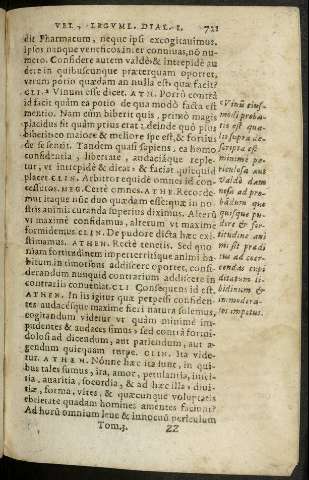 VEL, LEGVM. DIAL. I. 721
dit Pharmatum, neque ipsi excogitauimus.
ipsos nunque veneficos inter conuiuas, nō nu-
mero. Considere autem valdè & intrepidè au
dere in quibuscunque præterquam oportet,
vtrum potio quædam an nulla est quæ facit?
CLI. Vinum esse dicet. ATH. Porrò contrà
id facit quàm ea potio de qua modò facta est
mentio. Nam cùm biberit quis, primò magis
placidus sit quàm prius erat: deinde quò plus
biberit eo maiore & meliore spe est, & fortius
de se sentit. Tandem quasi sapiens, ea homo
confidentia, libertate, audaciáque reple-
tur, vt intrepidè & dicat, & faciat quicquid
placet. CLIN. Arbitror equidē omnes id con-
cessuros. MEG. Certè omnes. ATHE. Recorde-
mur itaque nūc duo quædam esse: quæ in no-
stris animi curanda superius diximus. Alterū
vt maximè confidamus, alterum vt maximè
formidemus. CLIN. De pudore dicta hæc exi-
stimamus. ATHEN. Rectè tenetis. Sed quo-
niam fortitudinem imperterritúmque animi ha-
bitum, in timoribus addiscere oportet, consi-
derandum nunquid contrarium addiscere in
contrariis conueniat. CLI. Consequens id est.
ATHEN. In iis igitur quæ perpessi confiden-
tes audacésque maximè fieri natura solemus,
cogitandum videtur vt quàm minimè im-
pudentes & audaces simus: sed contrà formi-
dolosi ad dicendum, aut patiendum, aut a-
gendum quicquam turpe. CLIN. Ita vide-
tur. ATHEN. Nónne hæc ita sunt, in qui-
bus tales sumus, ira, amor, petulantia, insci-
tia, auaritia, socordia, & ad hæc illa: diui-
tiæ, forma, vires, & quæcunque voluptatis
ebrietate quadam homines amentes faciunt?
Ad horū omnium leue & innocuū periculum
Tom.3. ZZ
Vinū eius-
modi proba-
tio est qua-
lis supra de-
scripta est
minimè pe-
riculosa aut
valdè dam
nosa ad pro-
bādum quæ
quisque pu-
dore & for-
titudine ani
mi sit prædi
tus ad coer-
cendas cupi
ditatum li-
bidinum &
immodera-
tos impetus.